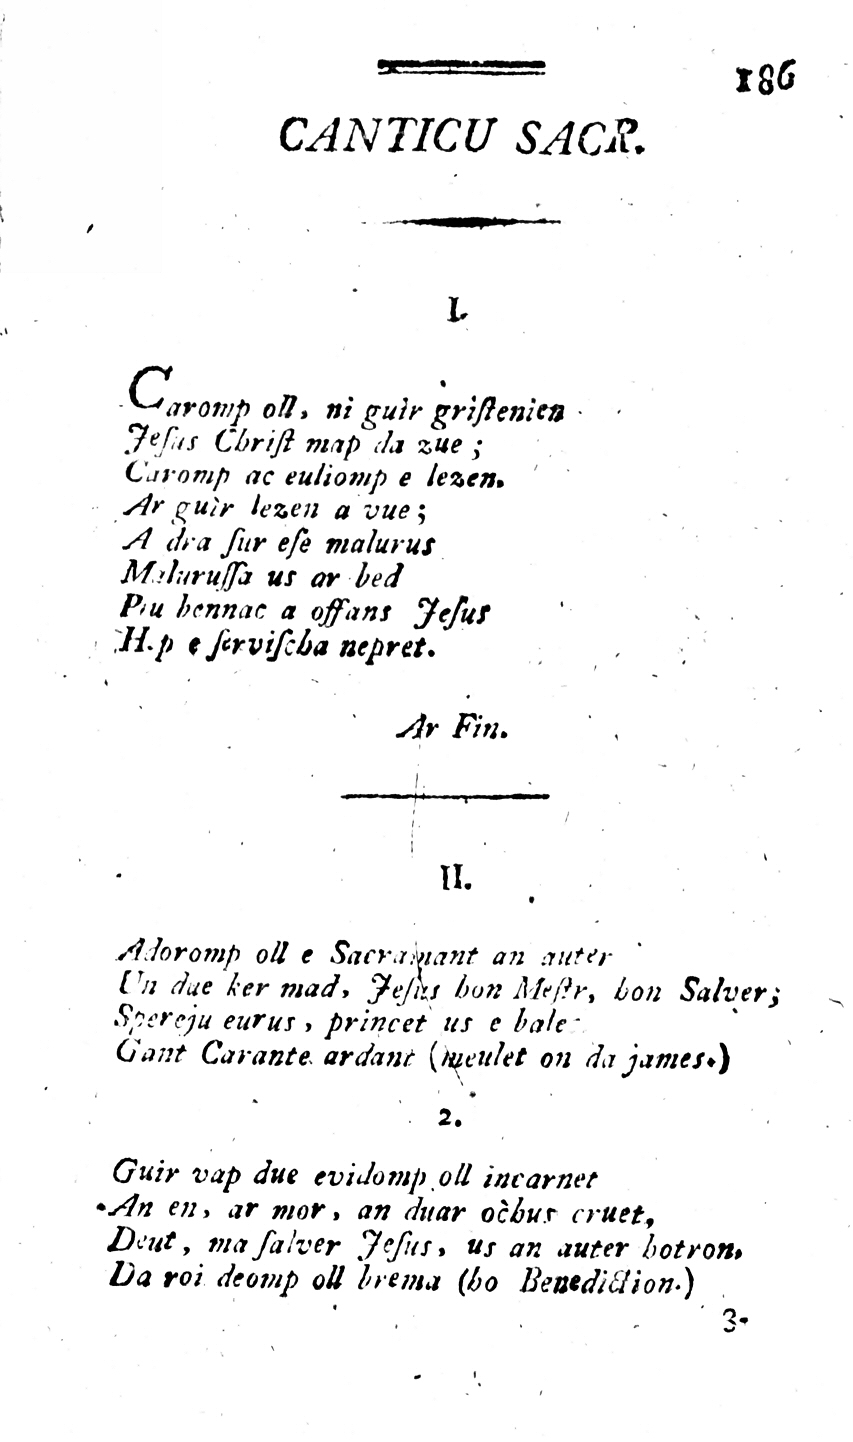 186
CANTICU SACR.
I.
Caromp oll, ni guìr griſtenien
Jeſus Chriſt map da zue ;
Caromp ac euliomp e lezen.
Ar guìr lezen a vue ;
A dra ſur eſe malurus
Maluruſſa us ar bed
Piu bennac a offans Jeſus
H p e ſerviſcha nepret.
Ar Fin.
II.
Adoromp oll e Sacramant an auter
Un due ker mad, Jeſus hon Meſtr, hon Salver ;
Spereju eurus , princet us e bale
Gant Carante ardant (meulet on da james.)
2.
Guir vap due evidomp oll incarnet
An en, ar mor, an duar ochus cruet,
Deut, ma ſalver Jeſus, us an auter hotron,
Da roi deomp oll brema (ho Benediction.)
3.